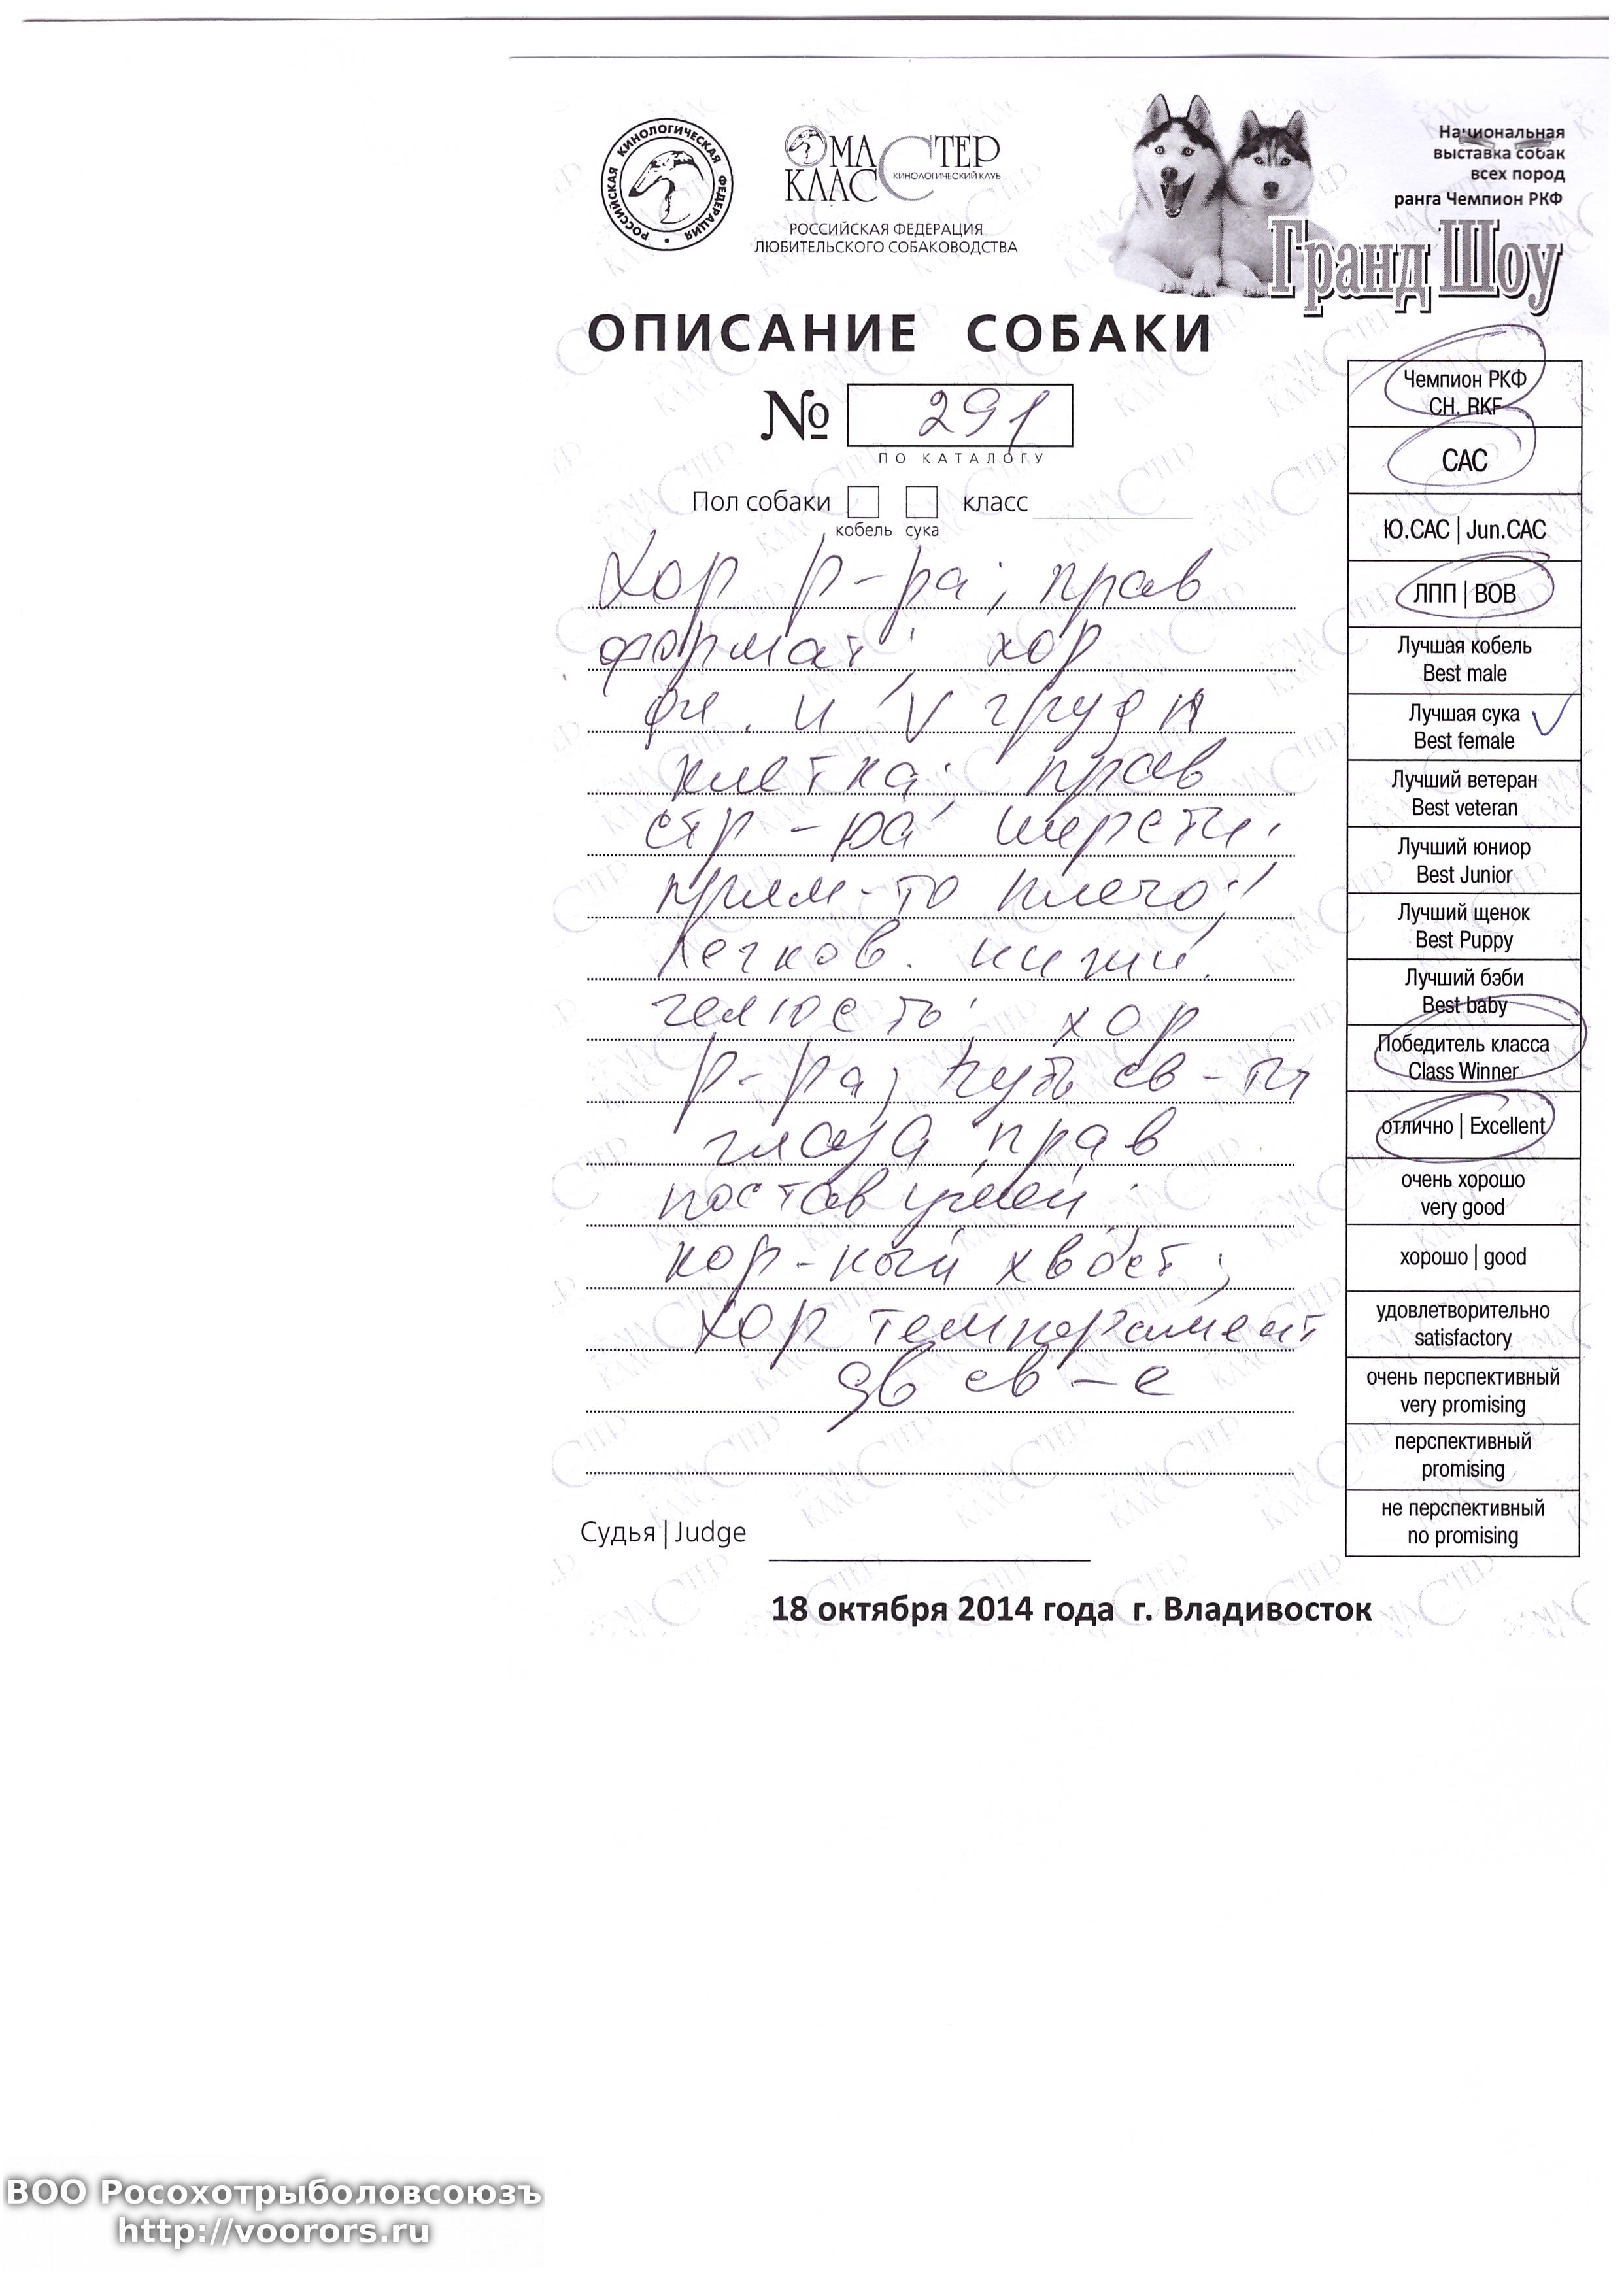 РОССИЙСКАЯ КИНОЛОГИЧЕСКАЯ ФЕДЕРАЦИЯ
МАСТЕР
КЛАСС
КИНОЛОГИЧЕСКИЙ КЛУБ
РОССИЙСКАЯ ФЕДЕРАЦИЯ
ЛЮБИТЕЛЬСКОГО СОБАКОВОДСТВА
Национальная
выставка собак
всех пород
ранга Чемпион РКФ
Гранд Шоу
ОПИСАНИЕ СОБАКИ
№ 291
ПО КАТАЛОГУ
Пол собаки класс
кобель сука
Хор р-ра; прав
формат; хор
и V грудн
клетка; прав
стр-ра шерсти;
прям-то плечо;
легков. нижн.
челюсть; хор
р-ра; чуть св-ты
глаза прав
постав ушей;
кор-ный хвост;
хор темперамент
дв св-е
Судья | Judge
18 октября 2014 года г. Владивосток
Чемпион РКФ
CH. RKF
CAC
Ю.САС | Jun.CAC
ЛПП | BOB
Лучшая кобель
Best male
Лучшая сука
Best female
Лучший ветеран
Best veteran
Лучший юниор
Best Junior
Лучший щенок
Best Puppy
Лучший бэби
Best baby
Победитель класса
Class Winner
отлично | Excellent
очень хорошо
very good
хорошо | good
удовлетворительно
satisfactory
очень перспективный
very promising
перспективный
promising
не перспективный
no promising
ВОО Росохотрыболовсоюзъ
http://voorors.ru